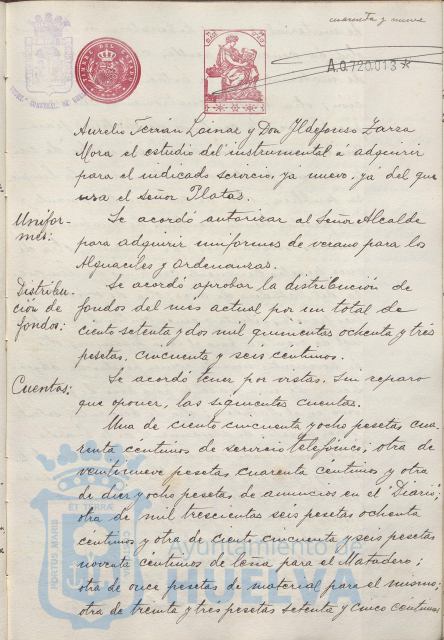 cuarenta y nueve
TIMBRE DEL ESTADO
A.0.720.013*
Aurelio Terrán Lainar y Don Ildefonso Zarza
Mora el estudio del instrumental á adquirir
para el indicado servicio, ya nuevo, ya del que
usa el señor Platas.
Unifor-
mes:
Se acordó autorizar al Señor Alcalde
para adquirir uniformes de verano para los
Alguaciles y Ordenanzas.
Distribu-
ción de
fondos:
Se acordó aprobar la distribución de
fondos del mes actual por un total de
ciento setenta y dos mil quinientas ochenta y tres
pesetas, cincuenta y seis céntimos.
Cuentas:
Se acordó tener por vistas, sin reparo
que oponer, las siguientes cuentas.
Una de ciento cincuenta y ocho pesetas cua-
renta céntimos de servicio telefónico; otra de
veintinueve pesetas cuarenta centimos y otra
de diez y ocho pesetas de anuncios en el "Diario;
otra de mil trescientas seis pesetas ochenta
centimos y otra de ciento cincuenta y seis pesetas
noventa céntimos de lena para el Matadero;
otra de once pesetas de material para el mismo;
otra de treinta y tres pesetas setenta y cinco centimos
PORTUS MARIS
ET TERRA
Ayuntamiento de
HUELVA